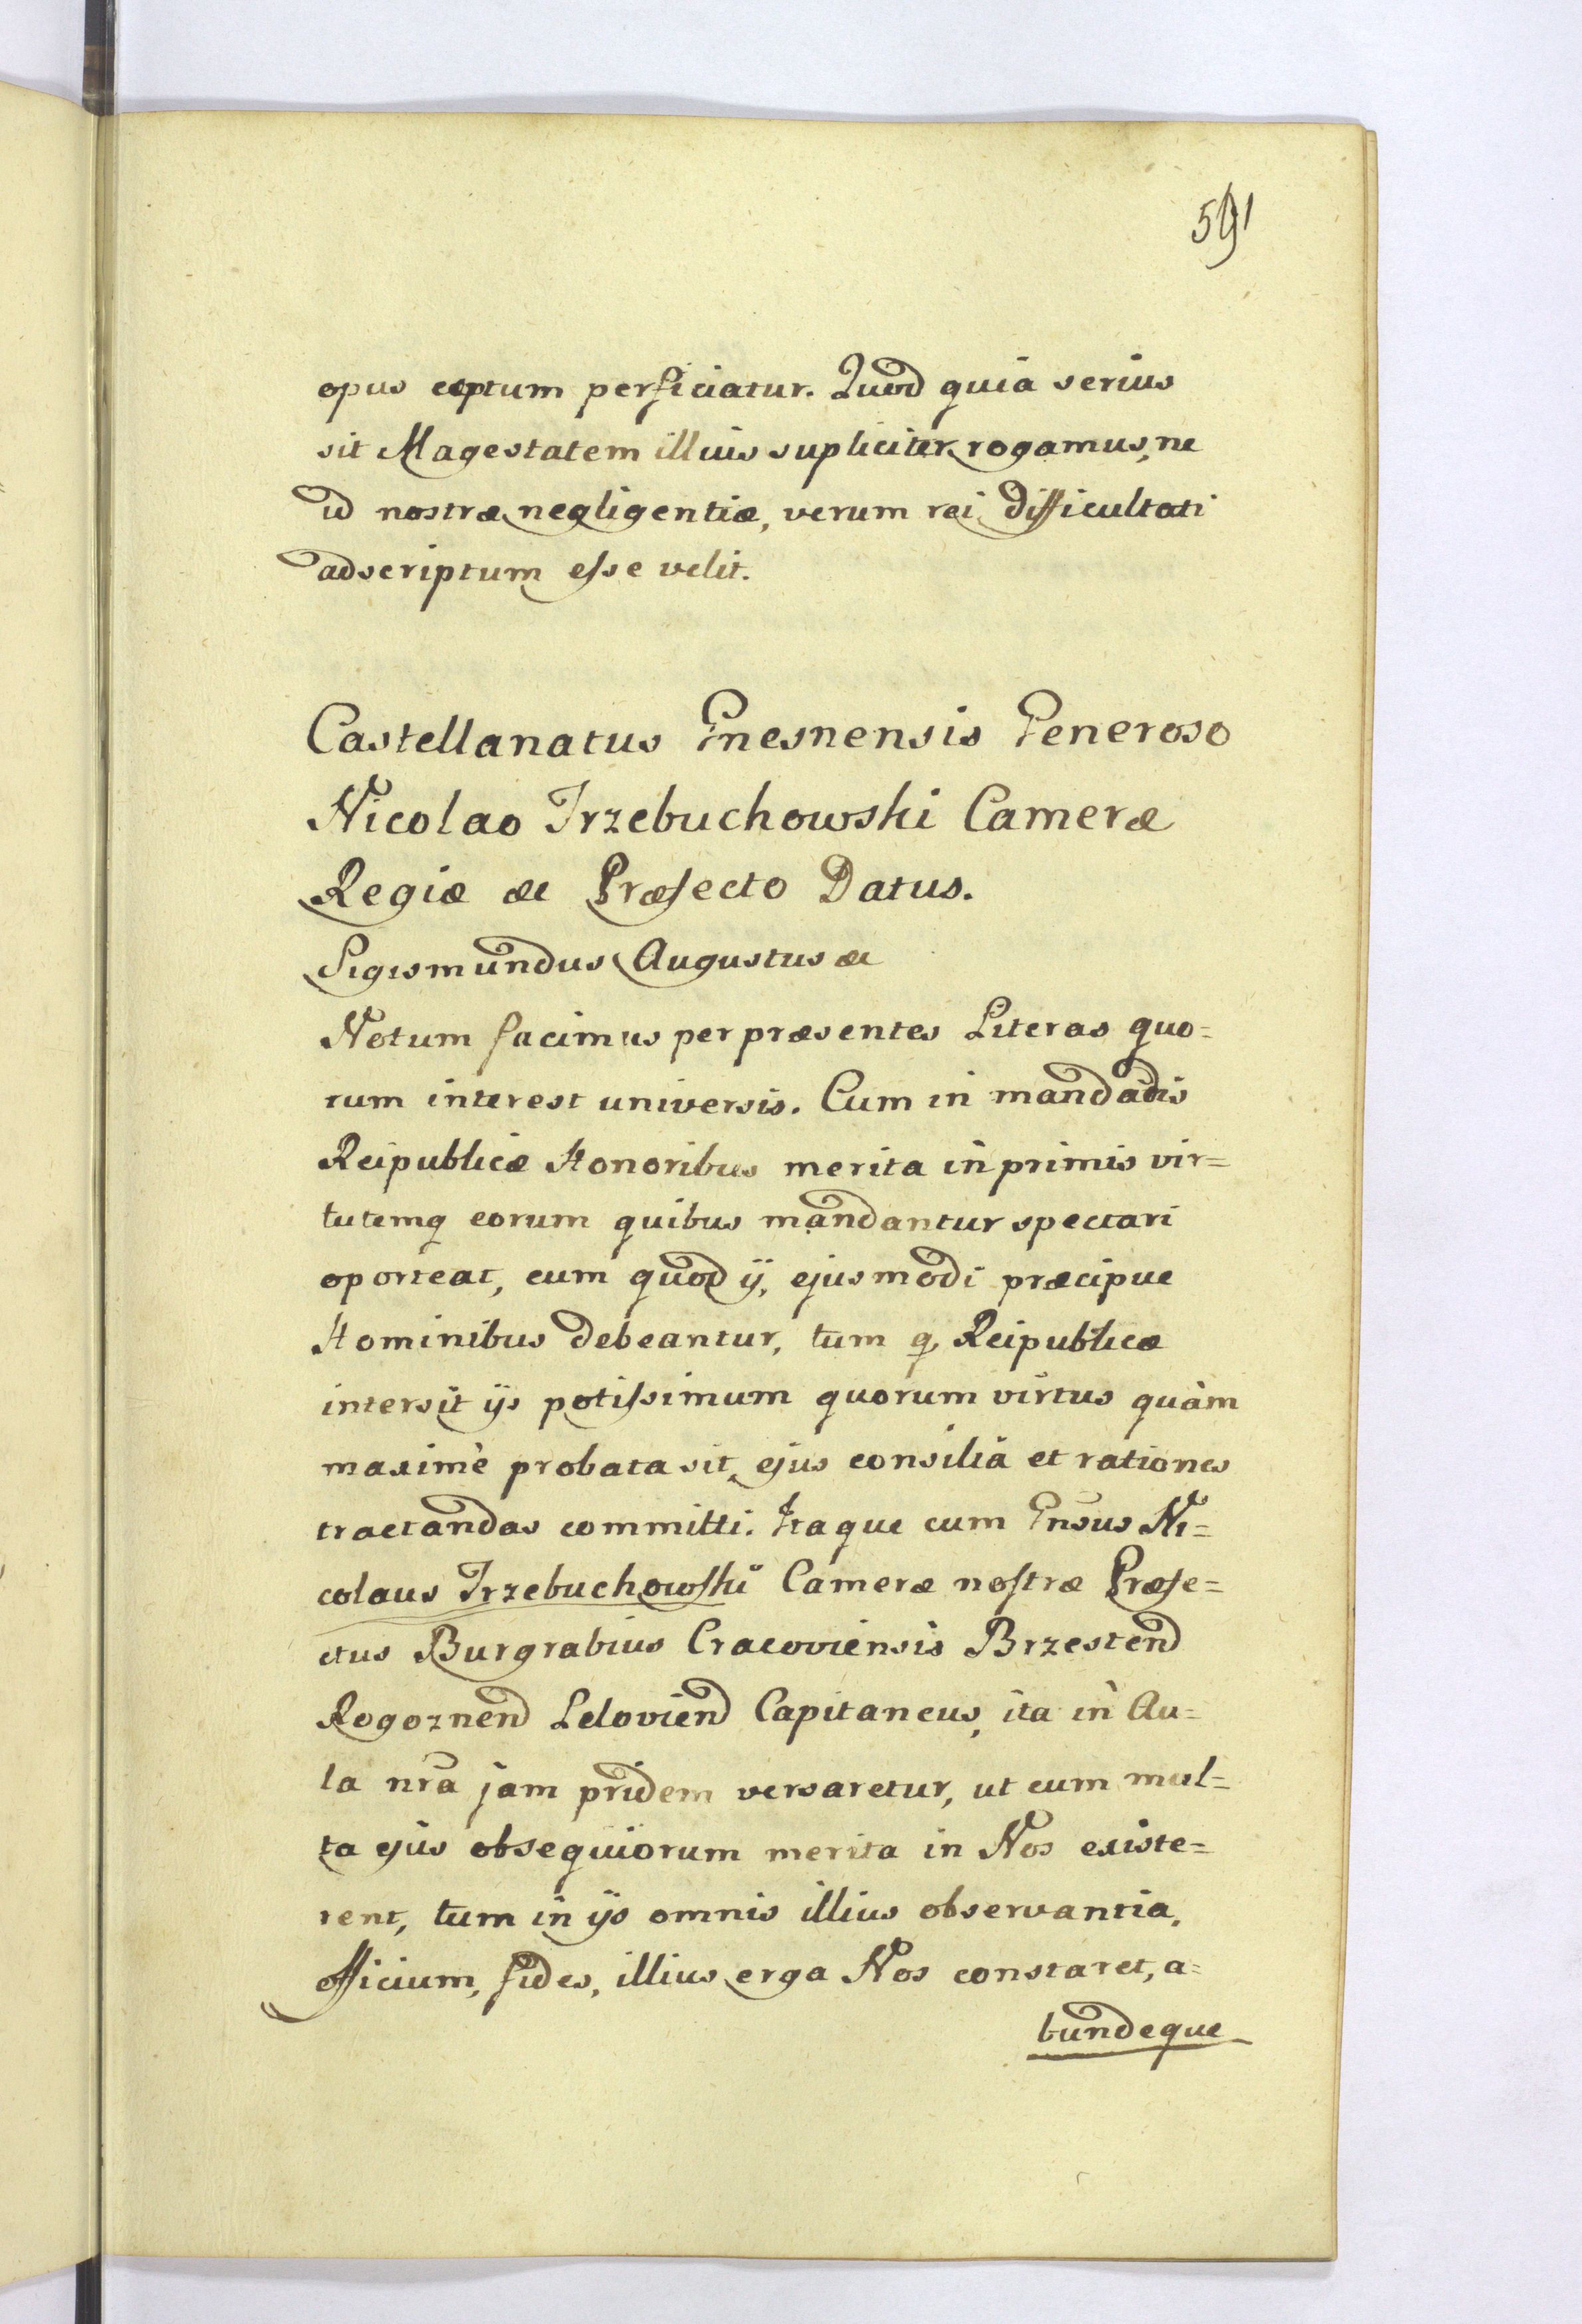 591
opus cæptum perficiatur. Quod quia serius
sit Magestatem illius supliciter rogamus, ne
id nostræ negligentiæ, verum rei difficultati
adscriptum esse velit.
Castellanatus Gnesnensis Generoso
Nicolao Trzebuchowski Cameræ
Regiæ &c Præfecto Datus.
Sigismundus Augustus &c
Notum facimus per præsentes Literas quo=
rum interest universis. Cum in mandadis
Reipublicæ Honoribus merita in primis vir=
tutemq eorum quibus mandantur spectari
oporteat, cum quod ij, ejusmodi præcipue
Hominibus debeantur, tum q Reipublicæ
intersit ijs potissimum quorum virtus quàm
maximè probata sit, ejus consilia et rationes
tractandas committi. Itaque cum Gnsus Ni=
colaus Trzebuchowski Cameræ nostræ Præfe=
ctus Burgrabius Cracoviensis Brzestend
Rogoznend Leloviend Capitaneus, ita in Au=
la nra jam pridem versaretur, ut cum mul=
ta ejus obsequiorum merita in Nos existe=
rent, tum in ijs omnis illius observantia,
officium, fides, illius erga Nos constaret, a=
bundeque